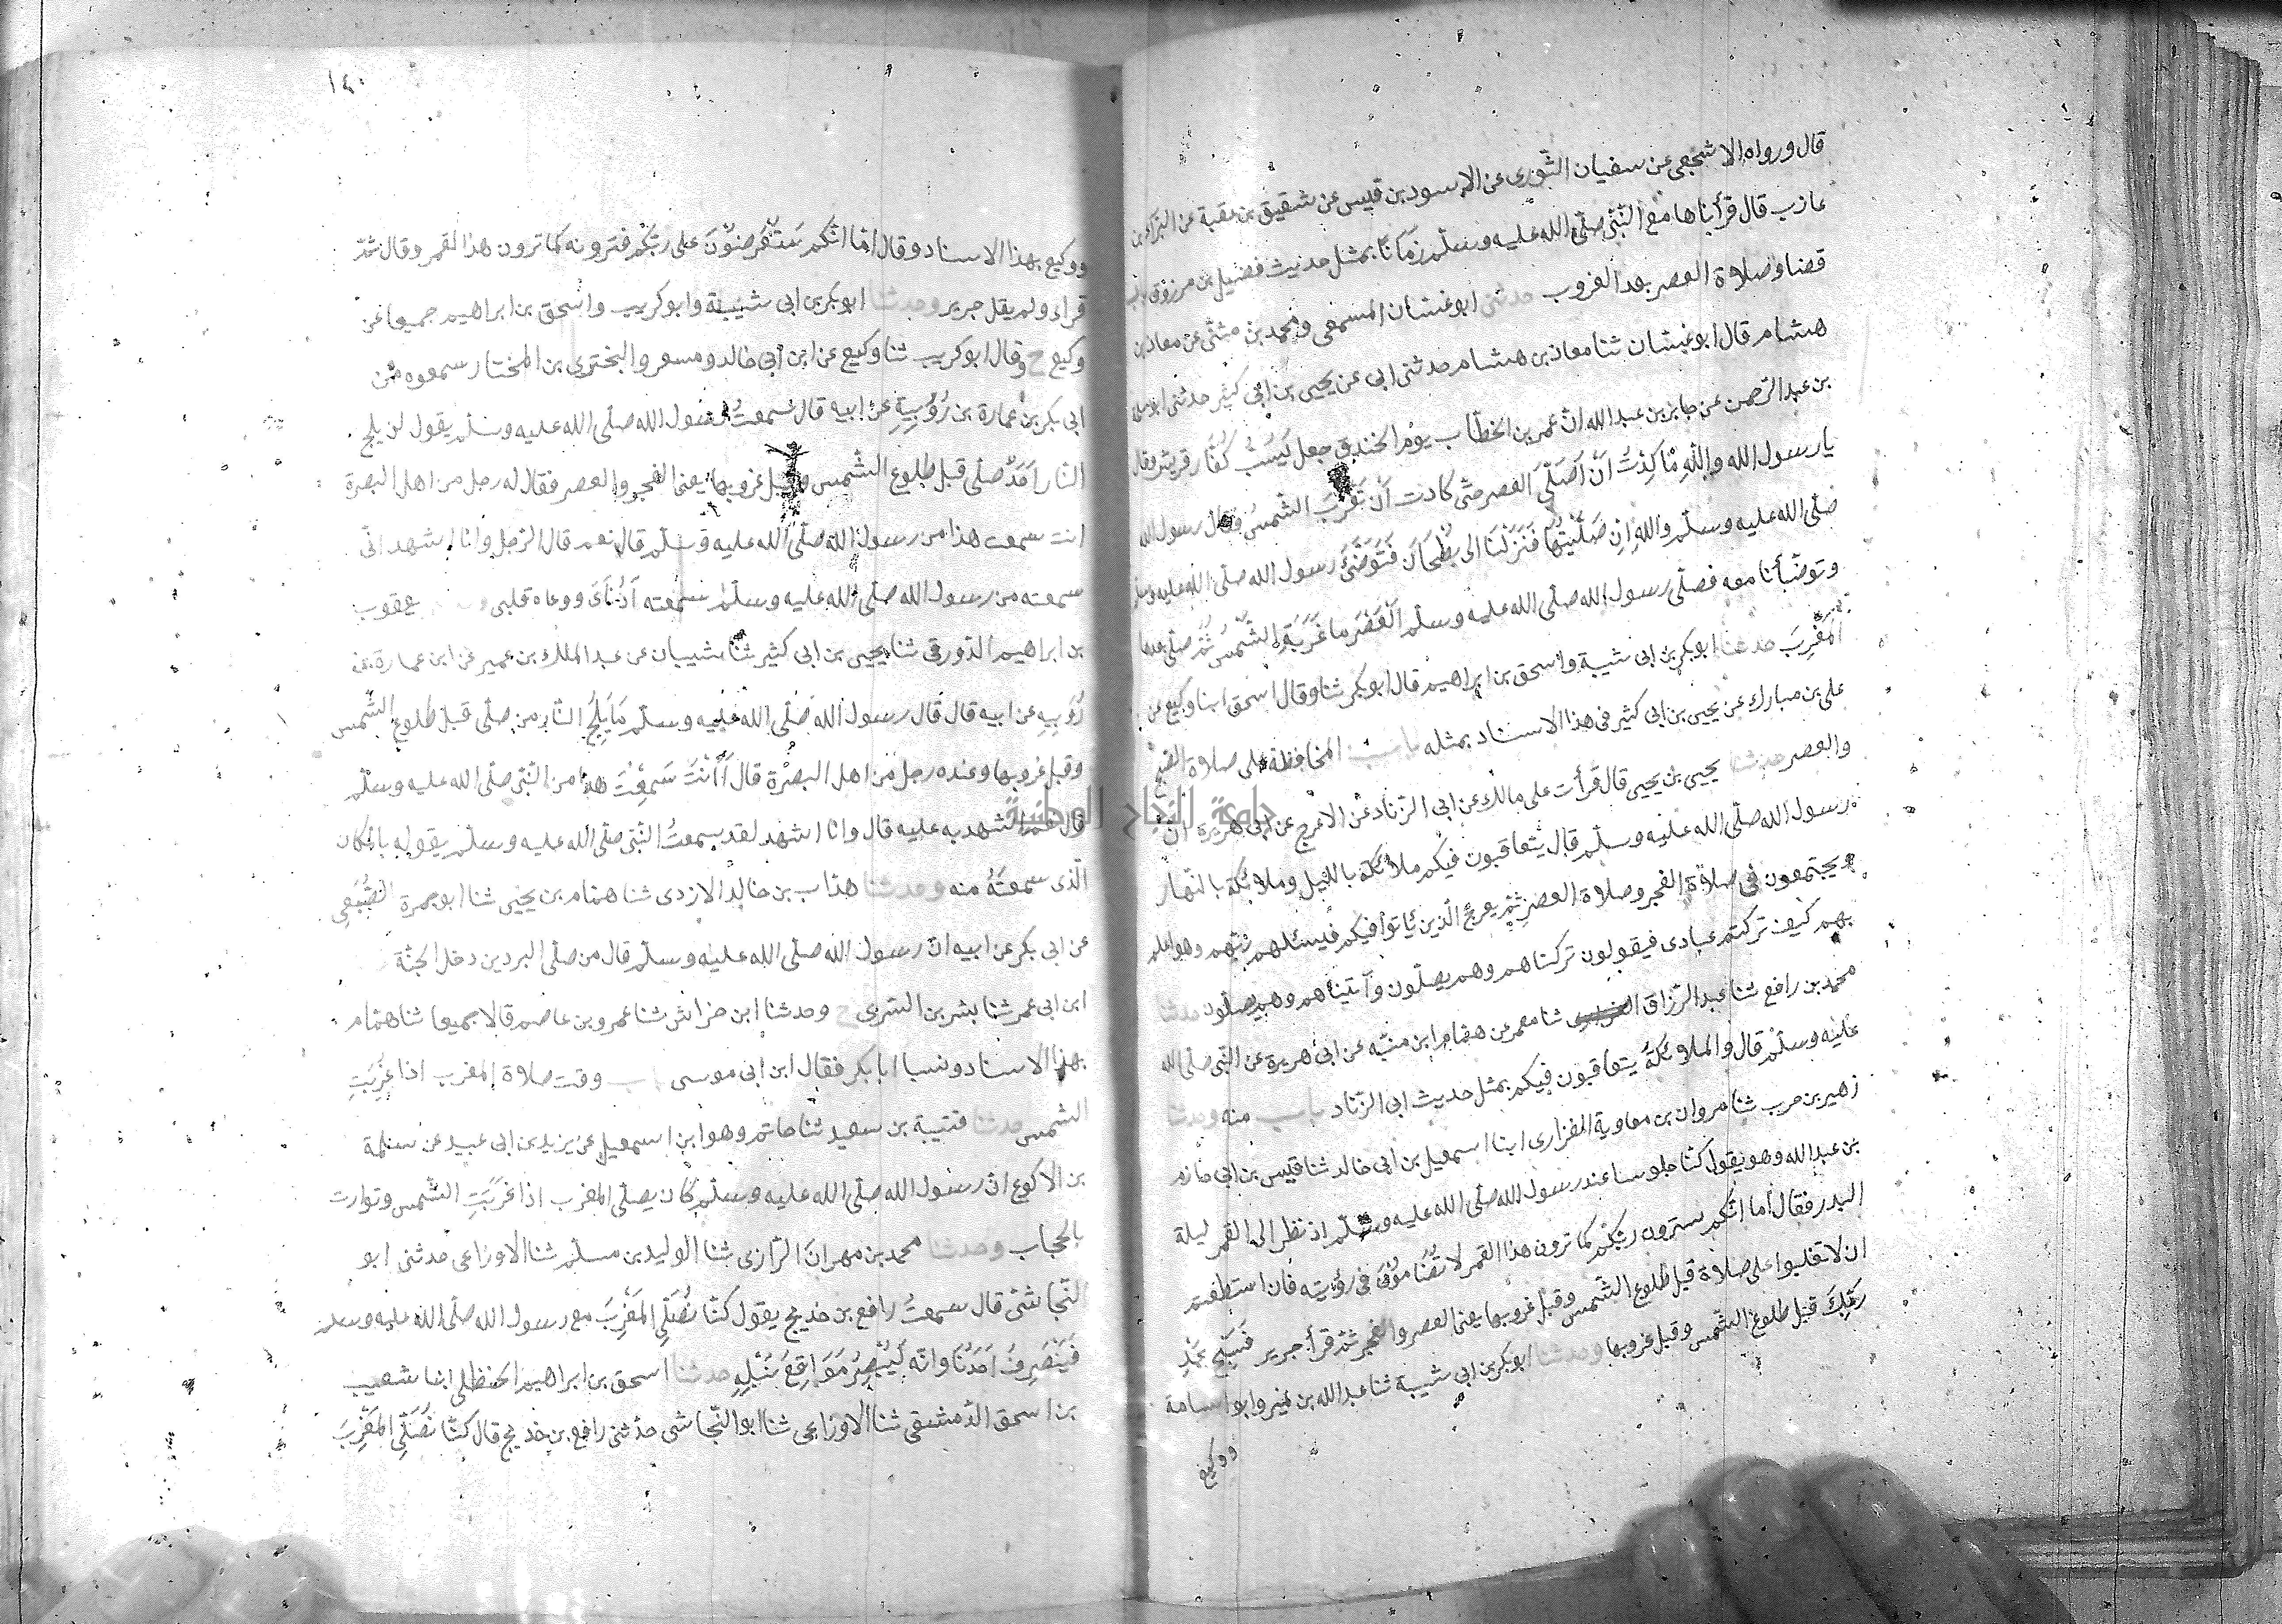 قال ورواه الاشجعى عن سفيان الثّورى عن الاسود بن قيس عن شقيق بن عقبة عن البَرَاء بن
عازب قال قرأناها مع النّبىّ صلّى الله عليه وسلّم زمَانًا بمثل حديث فضيل بن مرزوق باب
قضاء صلاة العصر بعد الغروب حدثنى ابو غسّان المسمعى ومحمد بن مثنّى عن معاذ بن
هشام قال ابو غسّان ثنا معاذ بن هشام حدثنى ابى عن يحيى بن ابى كثير حدثنى ابو سلمة
بن عبد الرّحمن عن جابر بن عبد الله انّ عمر بن الخطّاب يوم الخندق جعل يَسُبُّ كُفَّار قريش وقال
يا رسول الله واللهِ مَا كِدْتُ اَنْ اُصَلِّىَ العصر حتّى كادت اَنْ تَغْرُبَ الشّمسُ فقال رسول الله
صلّى الله عليه وسلّم واللهِ اِنْ صَلَّيْتُهَا فَنَزَلْنَا الى بُطْحَانَ فَتَوَضَّئَ رسول الله صلّى الله عليه وسلم
وتوضّأنا معه فصلّى رسول الله صلّى الله عليه وسلّم الْعَصْرَ ما غَرَبَةِ الشَّمْسُ ثُمّ صلّى بعدها
المَغْرِبَ حدثنا ابو بكر بن ابى شيبة واسحق بن ابراهيم قال ابو بكر ثنا وقال اسحق ابنا وكيع عن
على بن مبارك عن يحيى بن ابى كثير فى هذا الاسناد بمثله باب المحافظة على صلاة الصّبح
والعصر حدثنا يحيى بن يحيى قال قرأت على مالك عن ابى الزّناد عن الاعرج عن ابى هريرة انّ
رسول الله صلّى الله عليه وسلّم قال يتعاقبون فيكم ملائكة بالليل وملائكة بالنّهار
ويجتمعون فى صلاة الفجر وصلاة العصر ثمّ يعرج الّذين باتوا فيكم فيسئلهم ربّهم وهو اعلم
بهم كيف تركتم عبادى فيقولون تركناهم وهم يصلّون وآتيناهم وهم يصلّون حدثنا
محمد بن رافع ثنا عبد الرّزاق ثنا معمر عن همّام ابن منبّه عن ابى هريرة عن النّبى صلّى الله
عليه وسلّم قال والملائكةُ يتعاقبون فيكم بمثل حديث ابى الزّناد باب منه وحدثنا
زهير بن حرب ثنا مروان بن معاوية الفزارى ابنا اسمعيل بن ابى خالد ثنا قيس بن ابى حازم
بن عبد الله وهو يقول كنّا جلوسا عند رسول الله صلّى الله عليه وسلّم اذ نظر الى القمر ليلة
البدر فقال اما انّكم سترون ربّكم كما ترون هذا القمر لا تُضَامُّونَ فى رؤيته فان استطعتم
ان لا تغلبوا على صلاة قبل طلوع الشّمس وقبل غروبها يعنى العصر والفجر ثمّ قرأ جرير فَسَبِّحْ بِحَمْدِ
رَبِّكَ قبل طلوع الشّمس وقبل غروبها وحدثنا ابو بكر بن ابى شيبة ثنا عبد الله بن نمير وابو اسامة
ووكيع
١٤٠
ووكيع بهذا الاسناد وقال اما انّكم سَتُعْرَضُوْنَ على ربّكُم فترونه كما ترون هذا القمر وقال ثمّ
قراء ولم يقل جرير وحدثنا ابو بكر بن ابى شيبة وابو كريب واسحق بن ابراهيم جميعا عن
وكيع ح وقال ابو كريب ثنا وكيع عن ابن ابى خالد ومسعر والبخترى بن المختار سمعوه من
ابى بكر بن عمارة بن رُؤَيْبِةِ عن ابيه قال سمعتُ رسول الله صلّى الله عليه وسلّم يقول لن يلج
النّار اَحَدٌ صلّى قبل طلوع الشّمس وقبل غروبها يعنى الفجر والعصر فقال له رجل من اهل البصرة
انت سمعت هذا من رسول الله صلّى الله عليه وسلّم قال نعم قال الرّجل وانا اشهد انّى
سمعته من رسول الله صلّى الله عليه وسلّم سمعته اُذُنَاىَ ووعاه قلبى يعقوب
بن ابراهيم الدّورقى ثنا يحيى بن ابى كثير ثنا شيبان عن عبد الملك بن عمير عن ابن عمارة بن
رُؤَيْبِةِ عن ابيه قال قال رسول الله صلّى الله عليه وسلّم مَا يَلِجُ النّار من صلّى قبل طلوع الشّمس
وقبل غروبها وعنده رجل من اهل البصْرة قال أَأَنْتَ سَمِعْتَ هذا من النّبى صلّى الله عليه وسلّم
قال نعم اشهد به عليه قال وانا اشهد لقد سمعتُ النّبى صلّى الله عليه وسلّم يقوله بالمكان
الّذى سمعتَهُ منه وحدثنا هدّاب بن خالد الازدى ثنا همّام بن يحيى ثنا ابو جمرة الضُّبَعِى
عن ابى بكر عن ابيه انّ رسول الله صلّى الله عليه وسلّم قال من صلّى البردين دخل الجنّة
ابن ابى عمر ثنا بشر بن السّرى ح وحدثنا ابن خراش ثنا عمرو بن عاصم قالا جميعا ثنا همّام
بهذا الاسناد ونسبا ابا بكر فقال ابن ابى موسى باب وقت صلاة المغرب اذا غَرَبَتِ
الشّمس حدثنا قتيبة بن سعيد ثنا حاتم وهو ابن اسمعيل عن يزيد بن ابى عبيد عن سلمة
بن الاكوع انّ رسول الله صلّى الله عليه وسلّم كان يصلّى المغرب اذا غَرَبَتِ الشّمس وتوارت
بالحجاب وحدثنا محمد بن مهران الرّازى ثنا الوليد بن مسلم ثنا الاوزاعى حدثنى ابو
النّجاشى قال سمعتُ رافع بن خديج يقول كنّا نُصَلِّى المَغْرِبَ مع رسول الله صلّى الله عليه وسلم
فَيَنْصَرِفُ اَحَدُنَا وانّه لَيُبْصِرُ مَوَاقِعَ نَبْلِهِ حدثنا اسحق بن ابراهيم الحنظلى ابنا شعيب
بن اسحق الدّمشقى ثنا الاوزاعى ثنا ابو النّجاشى حدّثنى رافع بن خديج قال كنّا نُصَلِّى المَغْرِبَ
جامعة النجاح الوطنية